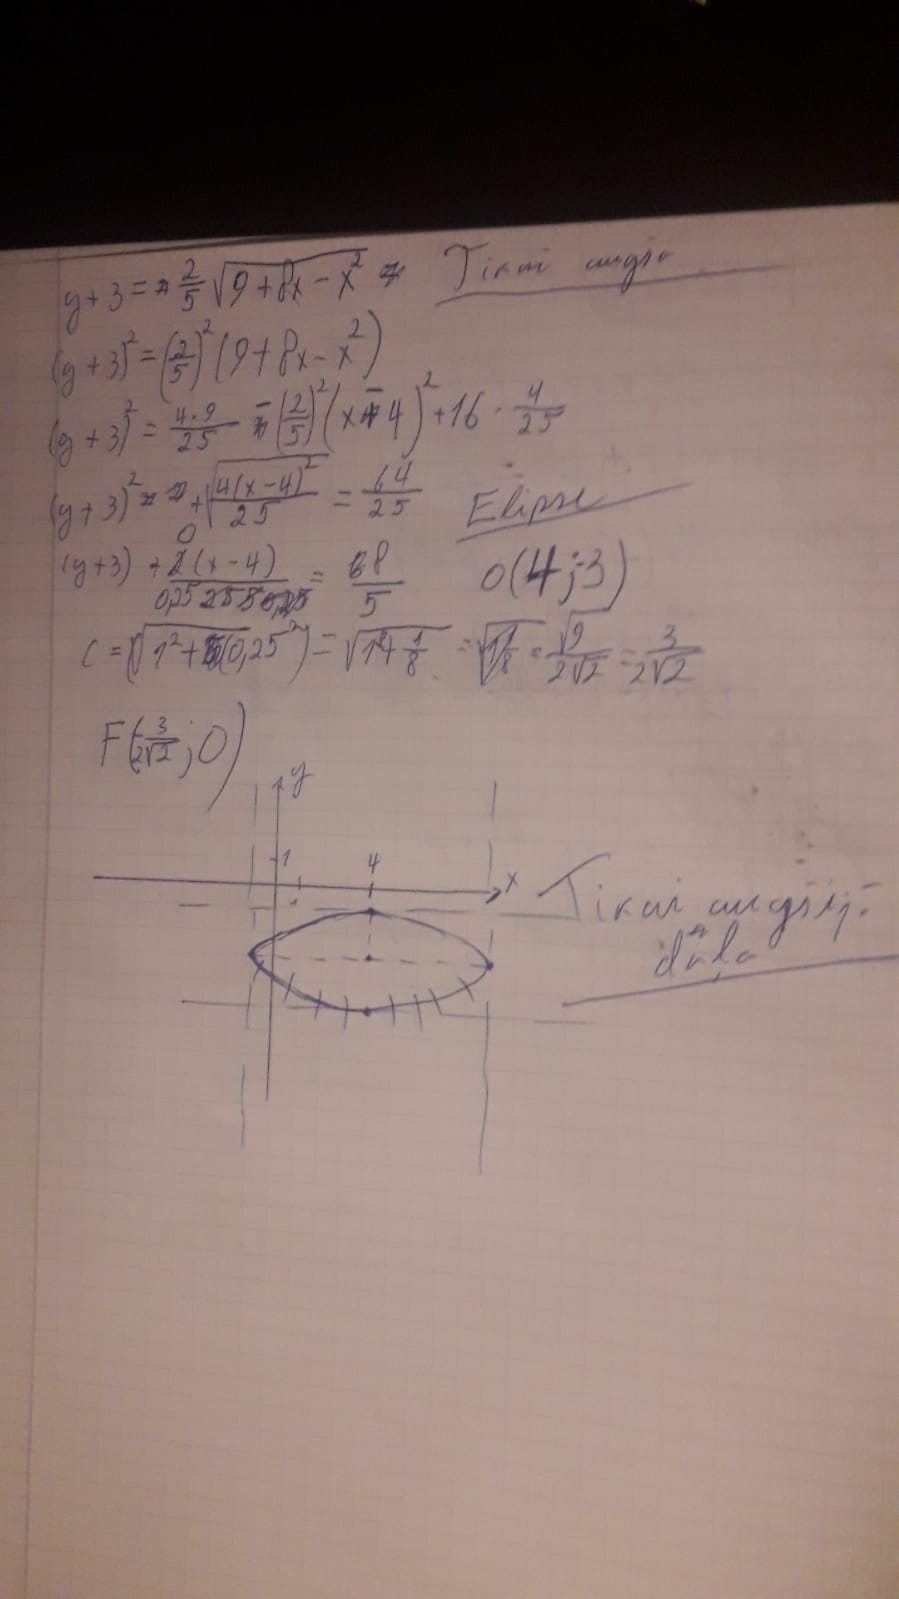 y+3 = 2/5 √(9+8x-x²) Tikai augšē
(y+3)² = (2/5)² (9+8x-x²)
(y+3)² = 4·9/25 - (2/5)² (x-4)² + 16 · 4/25
(y+3)² + √(4(x-4)²/25) = 64/25 Elipse
(y+3) + 2(x-4)/0,25 = 68/5 O(4;-3)
c = √(1²+(0,25²)) = √(1+1/8) = = √9/2√2 = 3/2√2
F(-3/2√2; 0)
y
1 4
x Tikai augšēj.
daļa